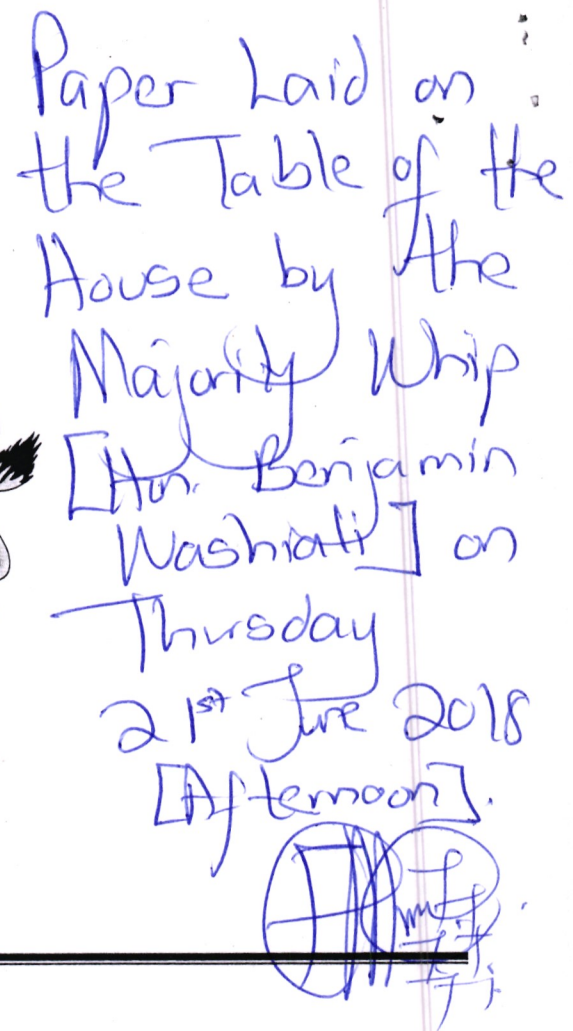 Paper Laid on
the Table of the
House by the
Majority Whip
[Hon. Benjamin
Washiali] on
Thursday
21st June 2018
[Afternoon].